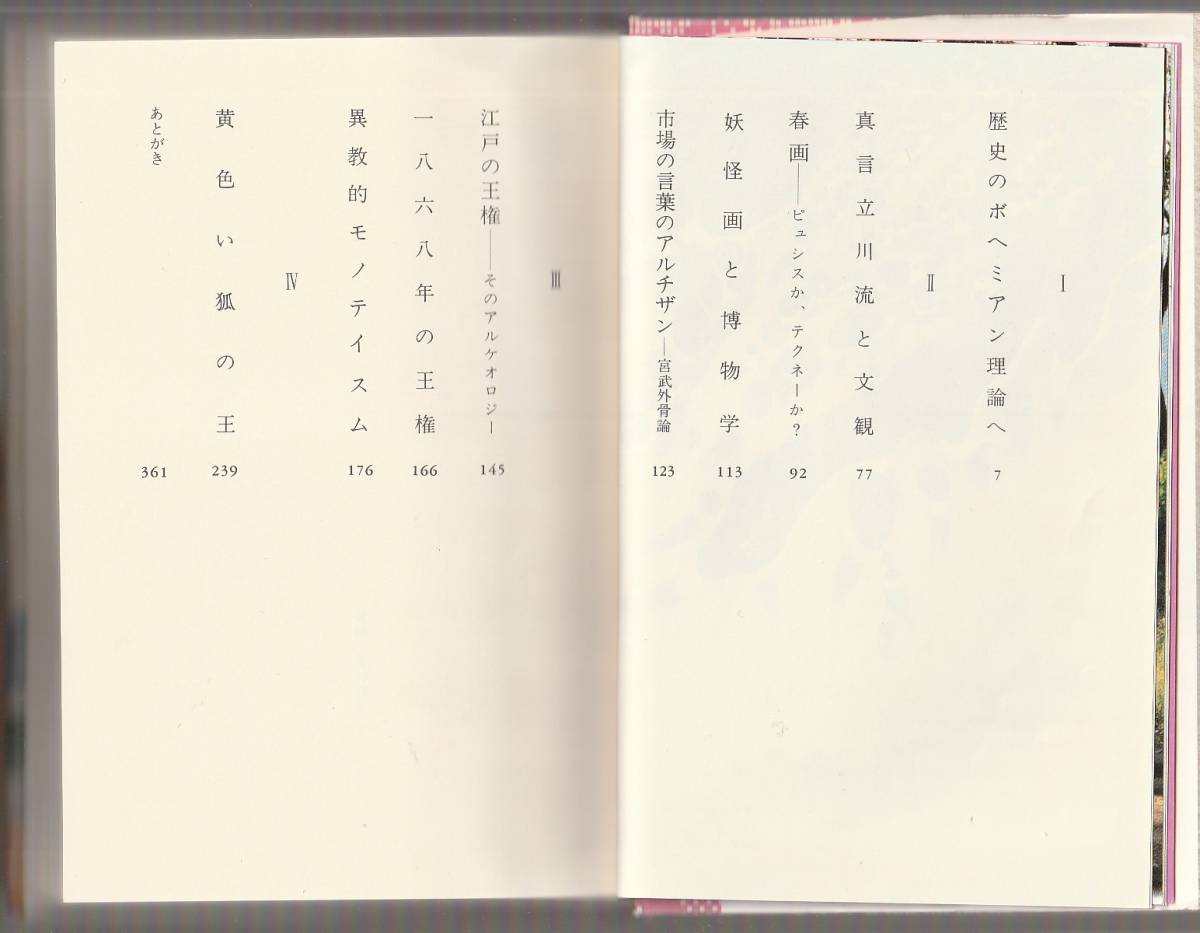 Ⅰ
歴史のボヘミアン理論へ 7
Ⅱ
真言立川流と文観 77
春画──ピュシスか、テクネーか? 92
妖怪画と博物学 113
市場の言葉のアルチザン──宮武外骨論 123
Ⅲ
江戸の王権──そのアルケオロジー 145
一八六八年の王権 166
異教的モノテイスム 176
Ⅳ
黄色い狐の王 239
あとがき 361